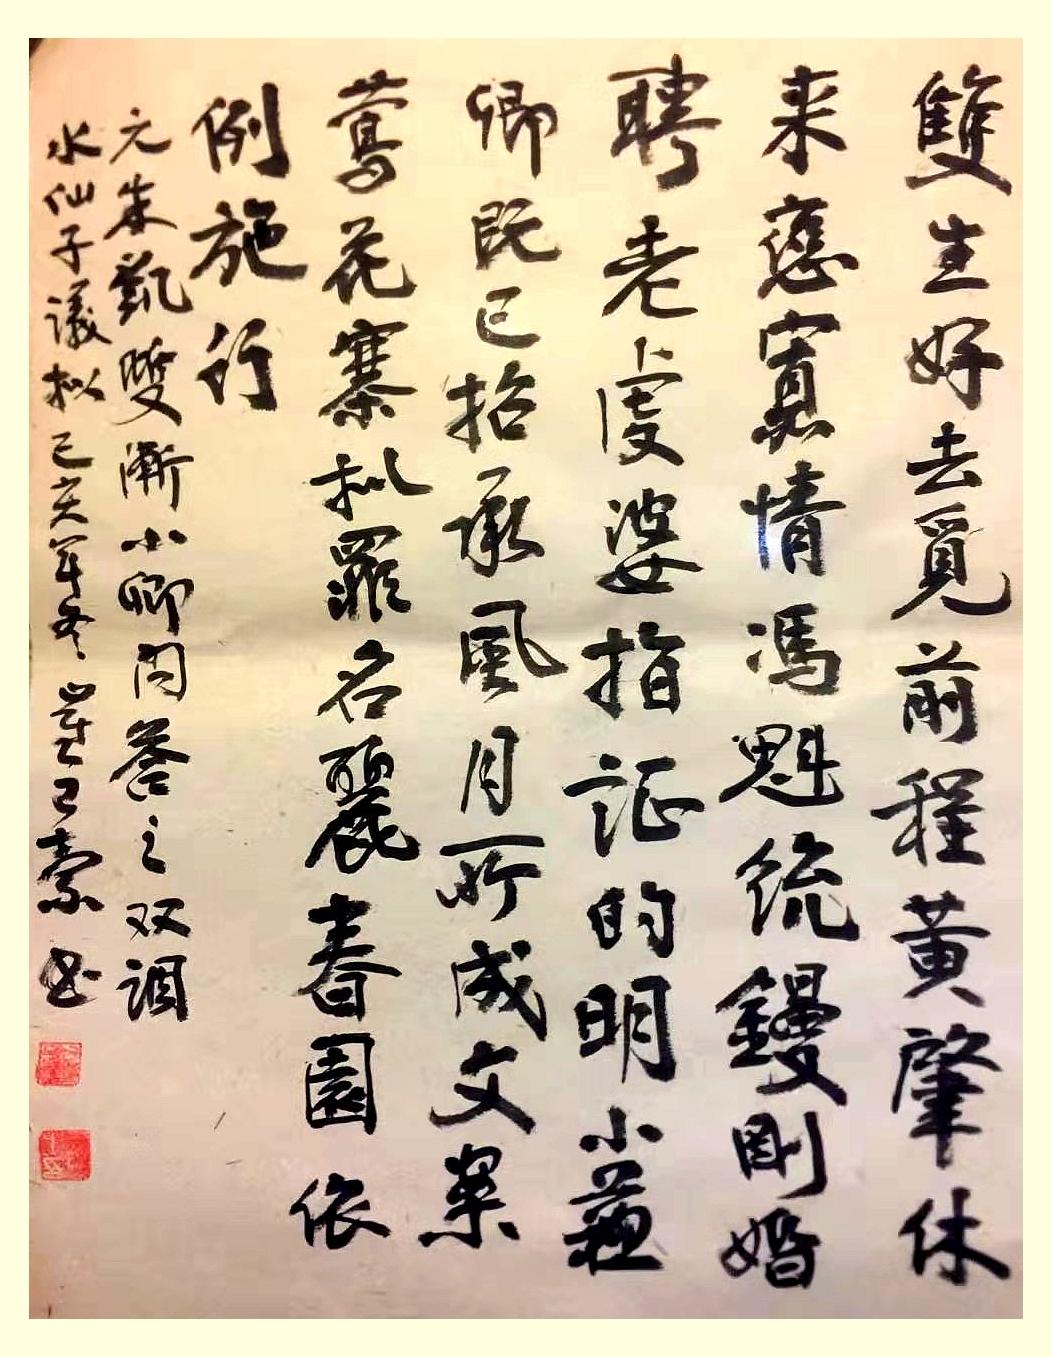 雙生好去覓前程黃肇休
来戀寡情馮魁統鏝剛婚
聘老虔婆指证的明小蘇
卿既已招承風月所成文案
莺花寨拟罪名麗春園依
例施行
元朱凱雙漸小卿問答之双調
水仙子議拟己亥年冬书